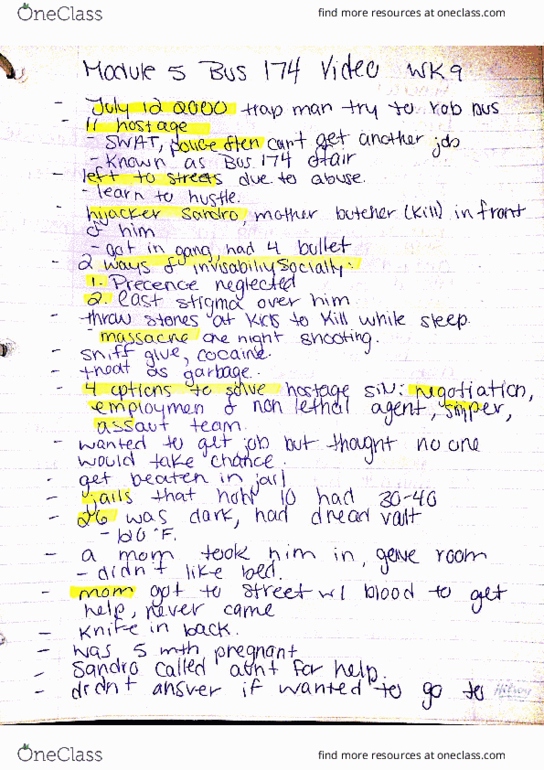 OneClass
find more resources at oneclass.com
Module 5 Bus 174 Video WK 9
- July 12 2000 trap man try to rob bus
- 11 hostage
- SWAT, police often can't get another job
- Known as Bus 174 affair
- left to streets due to abuse.
- learn to hustle.
- hijacker Sandro mother butcher (kill) in front
of him
- got in gang, had 4 bullet
- 2 ways of invisabiliy socially.
1. Precence neglected
2. Cast stigma over him.
- throw stones at kids to kill while sleep.
- massacre one night shooting.
- sniff glue, cocaine.
- treat as garbage.
- 4 options to solve hostage sin: negotiation,
employmen of non lethal agent, sniper,
assaut team.
- wanted to get job but thought no one
would take chance.
- get beaten in jail
- jails that hold 10 had 30-40
- 26 was dark, had dread valt
- 120°F.
- a mom took him in, gave room
- didn't like bed.
- mom got to street w/ blood to get
help, never came
- knife in back.
- was 5 mth pregnant
- Sandro called aunt for help.
- didnt answer if wanted to go to
OneClass
find more resources at oneclass.com